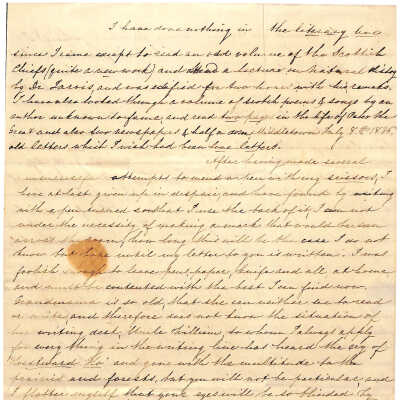 I have done nothing in the literary line
since I came except to read an odd volume of the Scottish
Chiefs (quite a new work) and attend a lecture on Natural History
by Dr Jarvis, and was edified for two hours with his remarks.
I have also looked through a volume of scotch poems & songs by an
author unknown to fame, and read two pages in the life of Alex the
Great and also two newspapers & half a doz Middletown July 8th 1836.
old letters which I wish had been love letters.
After having made several
attempts to mend a pen with my scissors, I
have at last given up in despair, and have found by writing
with a pen turned so that I use the back of it, I am not
under the necessity of making a mark that would be seen
across the room, how long this will be the case I do not
know but hope until my letter to you is written. I was
foolish enough to leave pen, paper, knife and all at home
and must be contented with the best I can find now.
Grandmama is so old, that she can neither see to read
or write, and therefore does not know the situation of
her writing desk, Uncle William, to whom I always apply
for every thing in the writing line has heard the cry of
"Westward Ho" and gone with the multitude to the
prairies and forests, but you will not be particular and
I flatter myself that your eyes will be so blinded by